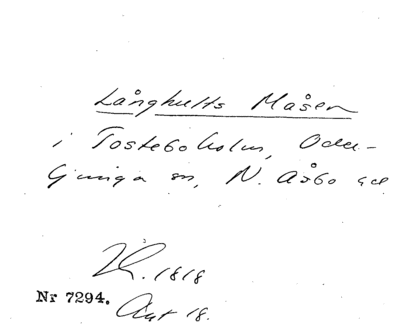 Långhults Måsen
i Tosteboholm, Oder-
ljunga sn, N. Åsbo hd
1818
Nr 7294. Akt 18.